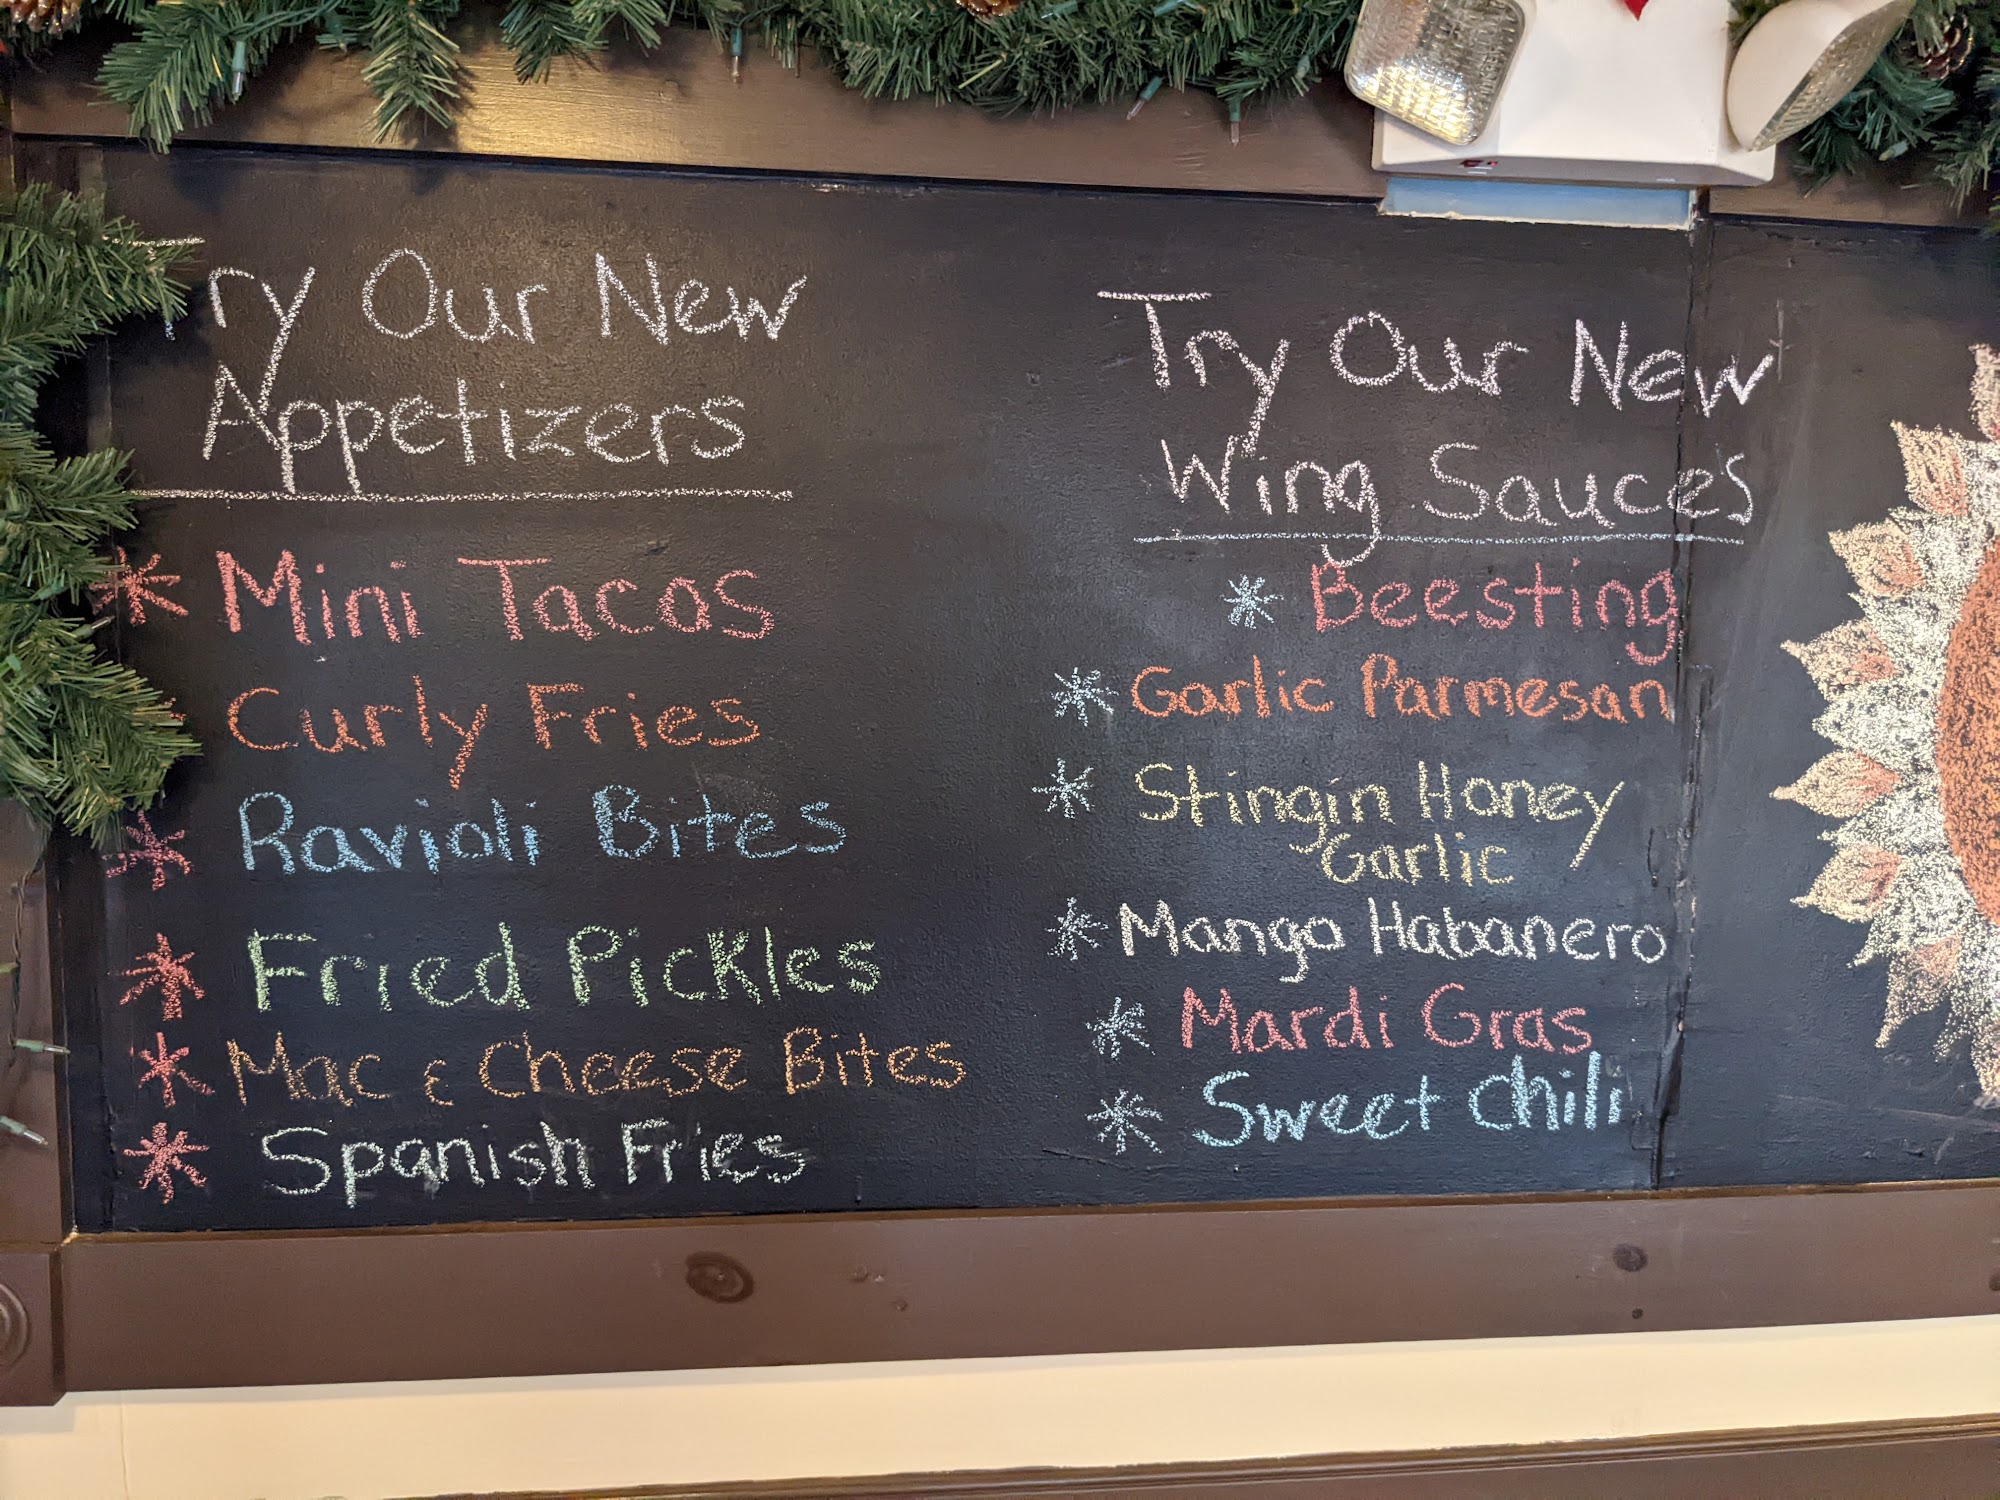 Try Our New
Appetizers
* Mini Tacos
* Curly Fries
* Ravioli Bites
* Fried Pickles
* Mac & Cheese Bites
* Spanish Fries
Try Our New
Wing Sauce's
* Beesting
* Garlic Parmesan
* Stingin Honey
Garlic
* Mango Habanero
* Mardi Gras
* Sweet Chili